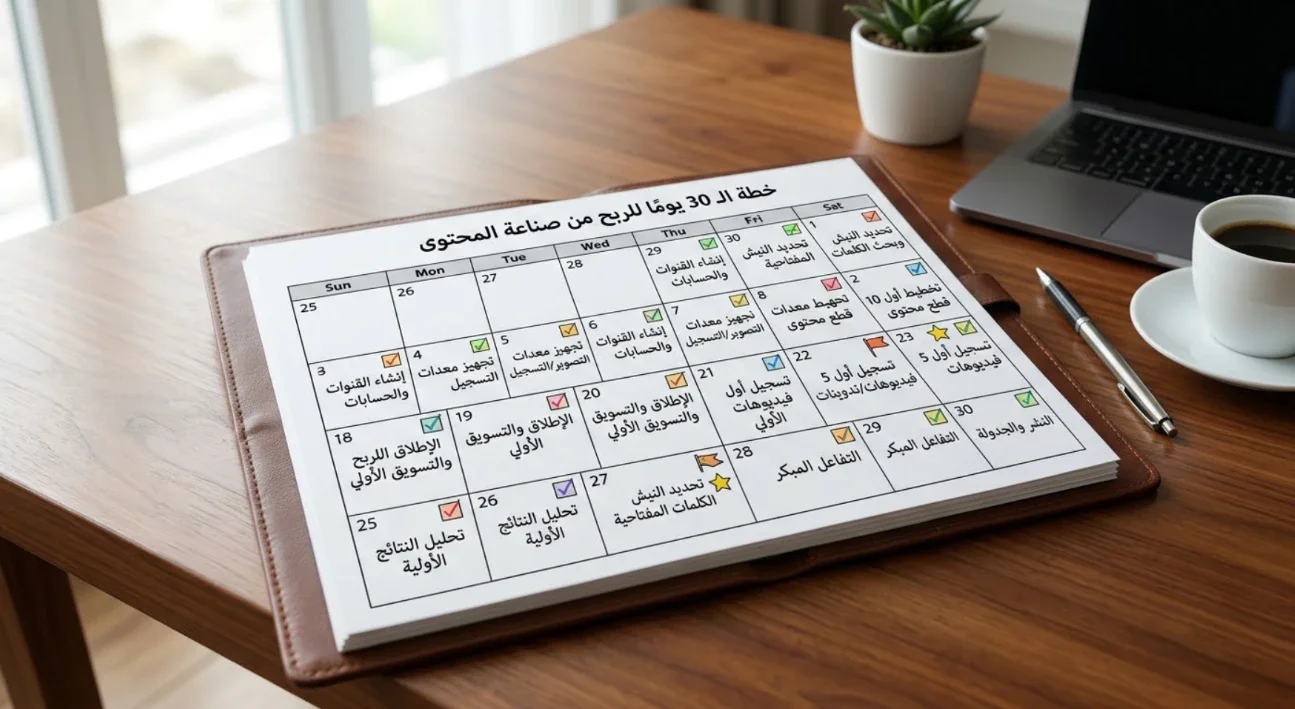 خطة الـ 30 يومًا للربح من صناعة المحتوى
Sun Mon Tue Wed Thu Fri Sat
25
26
27
28
29
إنشاء القنوات
والحسابات
30
تحديد النيش
المفتاحية
1
تحديد النيش
وبحث الكلمات
3
إنشاء القنوات
والحسابات
4
تجهيز معدات
التسجيل
5
تجهيز معدات
التصوير/التسجيل
6
إنشاء القنوات
والحسابات
7
تجهيز معدات
التصوير/التسجيل
8
معدات
قطع محتوى
2
تخطيط أول 10
قطع محتوى
18
الإطلاق اللربح
والتسويق الأولي
19
الإطلاق والتسويق
الأولي
20
الإطلاق والتسويق
والتسويق الأولي
21
تسجيل أول
فيديوهات
الأولي
22
تسجيل أول 5
فيديوهات/تدوينات
23
تسجيل أول 5
فيديوهات
25
تحليل النتائج
الأولية
26
تحليل النتائج
الأولية
27
تحديد النيش
الكلمات المفتاحية
28
التفاعل المبكر
29
التفاعل المبكر
30
النشر والجدولة